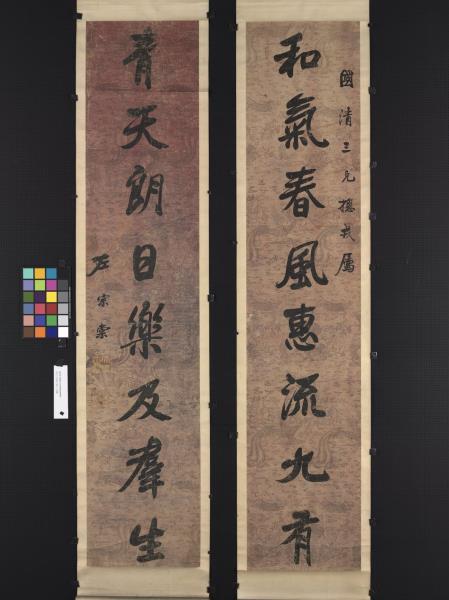 國清三兄摠戎屬
和氣春風惠流九有
青天朗日樂及羣生
左宗棠